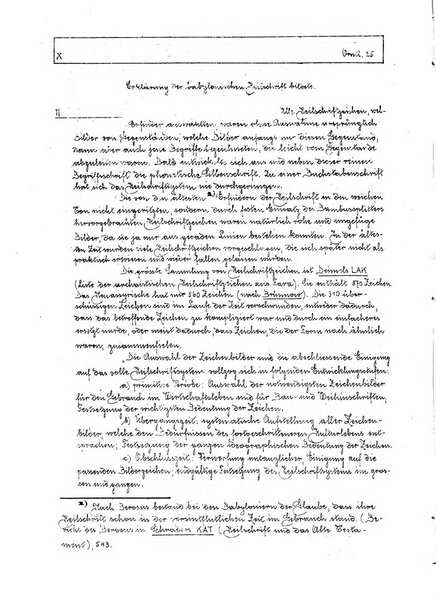 X Band. 25
Erklärung der babylonischen Keilschrift bilder.
1) Alle Keilschriftzeichen, wel-
Erfinder anwandten waren ohne Ausnahme ursprünglich
Bilder von Gegenständen, welche Bilder anfangs nur diesen Gegenstand,
dann aber auch jene Begriffe bezeichneten, die leicht vom Gegenstande
abzuleiten waren. Bald entwickelte sich aus und neben dieser reinen
Begriffsschrift die phonetische Silbenschrift. Zu einer Buchstabenschrift
hat sich das Keilschriftsystem nie durchgerungen.
Die von den ältesten x) Erfindern der Keilschrift in den weichen
Ton nicht eingeritzten, sondern durch festen Einsatz des Bambusgriffels
hervorgebrachten Keilschriftzeichen waren natürlich rohe und ungefüge
Bilder, da sie ja nur aus geraden Linien bestehen konnten. In der älte-
sten Zeit wurden viele Keilschriftzeichen vorgeschlagen, die sich später nicht als
praktisch erwiesen und wieder fallen gelassen wurden.
Die grösste Sammlung von Keilschriftzeichen ist Deimels LAK
(Liste der archaistischen Keilschriftzeichen aus Fara). Sie enthält 870 Zeichen.
Das Monogramm hat nur 560 Zeichen (nach Brünnow). Die 310 über-
schüssigen Zeichen sind im Laufe der Zeit verschwunden, entweder dadurch,
dass das betreffende Zeichen zu kompliziert war und durch ein einfacheres
ersetzt wurde, oder meist dadurch, dass Zeichen, die der Form nach ähnlich
waren, zusammenfielen.
Die Auswahl der Zeichenbilder und die abschliessende Einigung
auf das volle Keilschriftsystem vollzog sich in folgenden Entwicklungsstufen:
a) primitive Periode: Auswahl der notwendigsten Zeichenbilder
für den Gebrauch im Wirtschaftsleben und für Bau- und Weihinschriften,
Festsetzung der wichtigsten Bedeutung der Zeichen.
b) Übergangszeit: systematische Aufstellung aller Zeichen-
bilder, welche den Bedürfnissen des fortgeschritteneren Kulturlebens ent-
sprachen; Festsetzung der ideographischen Bedeutung der Zeichen.
c) Abschlusszeit: Verwerfung untauglicher, Einigung auf die
passenden Bilderzeichen; endgültige Festsetzung des Keilschriftsystems im gros-
sen und ganzen.
x) Nach Berossus bestand bei den Babyloniern der Glaube, dass ihre
Keilschrift schon in der vorsintflutlichen Zeit im Gebrauch stand. (Be-
richt des Berossus in Schraders KAT (Keilschrift und das Alte Testa-
ment), 543.